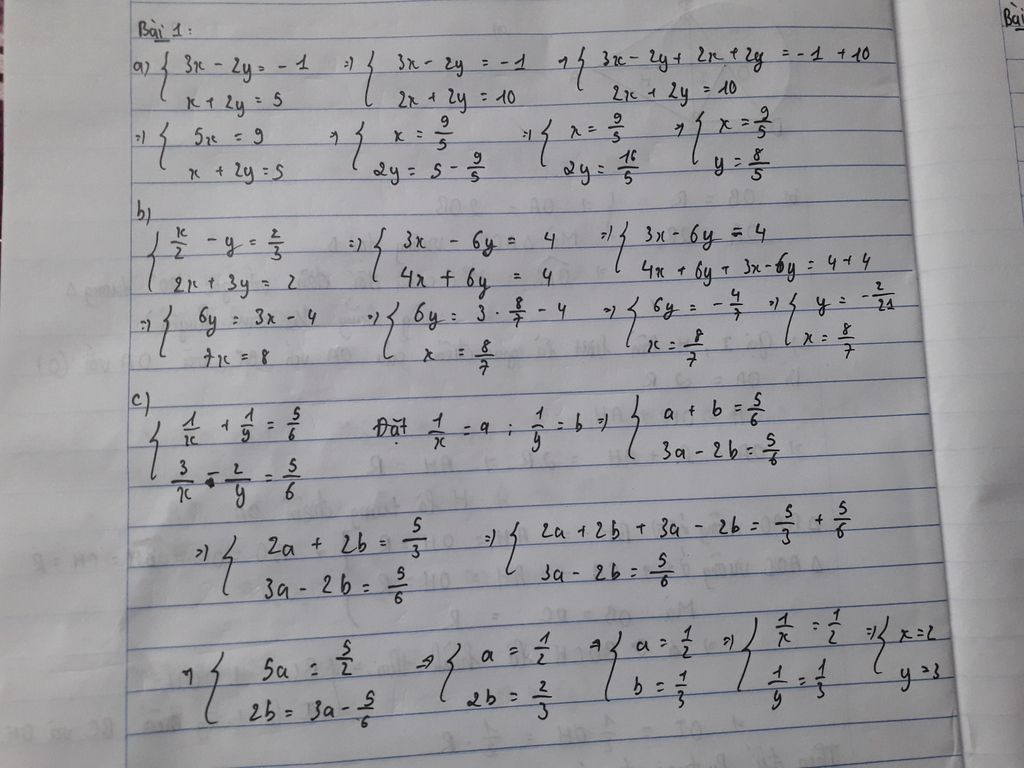 Bài 1:
a) { 3x - 2y = -1 ; x + 2y = 5 => { 3x - 2y = -1 ; 2x + 2y = 10 => { 3x - 2y + 2x + 2y = -1 + 10 ; 2x + 2y = 10
=> { 5x = 9 ; x + 2y = 5 => { x = 9/5 ; 2y = 5 - 9/5 => { x = 9/5 ; 2y = 16/5 => { x = 9/5 ; y = 8/5
b)
{ x/2 - y = 2/3 ; 2x + 3y = 2 => { 3x - 6y = 4 ; 4x + 6y = 4 => { 3x - 6y = 4 ; 4x + 6y + 3x - 6y = 4 + 4
=> { 6y = 3x - 4 ; 7x = 8 => { 6y = 3 . 8/7 - 4 ; x = 8/7 => { 6y = -4/7 ; x = 8/7 => { y = -2/21 ; x = 8/7
c)
{ 1/x + 1/y = 5/6 ; 3/x - 2/y = 5/6 Đặt 1/x = a ; 1/y = b => { a + b = 5/6 ; 3a - 2b = 5/6
=> { 2a + 2b = 5/3 ; 3a - 2b = 5/6 => { 2a + 2b + 3a - 2b = 5/3 + 5/6 ; 3a - 2b = 5/6
=> { 5a = 5/2 ; 2b = 3a - 5/6 => { a = 1/2 ; 2b = 2/3 => { a = 1/2 ; b = 1/3 => { 1/x = 1/2 ; 1/y = 1/3 => { x = 2 ; y = 3
Bài